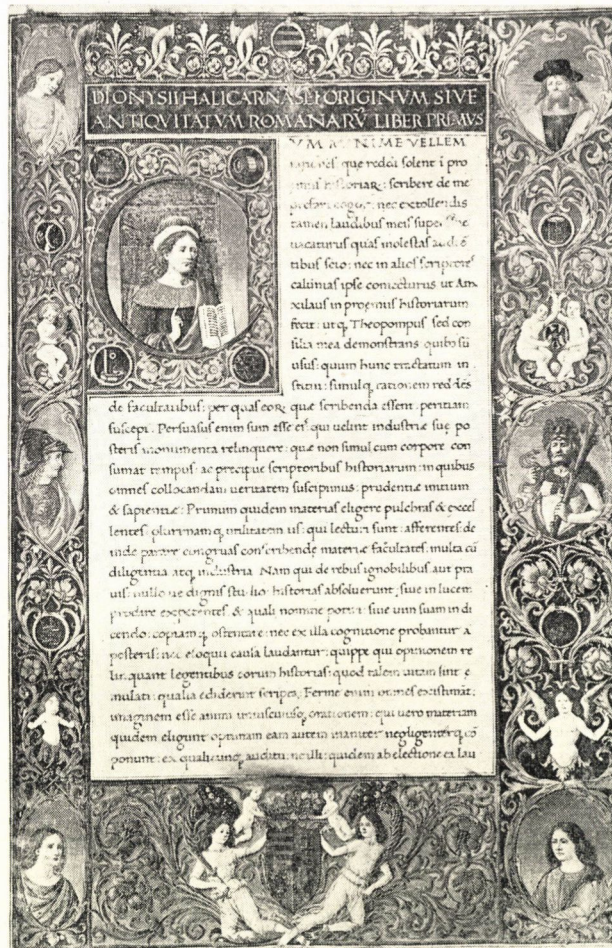 DIONYSII HALICARNASEI ORIGINVM SIVE
ANTIQVITATVM ROMANARV̄ LIBER PRIMVS
NIME VELLEM
que reddi solent i pro
scribere de me
nec extollendis
tamen laudibus meis supe
uacaturus quas molestas
tibus scio: nec in alios scriptores
calūnias ipse coniecturus ut An
xilaus in proemiis historiarum
fecit: ut q, Theopompus sed con
silia mea demonstrans quibus sū
usus: quum hunc tractatum in
stitui: simulq, rationem reddēs
de facultatibus: per quas eorꝝ quae scribenda essent peritiam
suscepi. Persuasus enim sum esse eis qui uelint industrie sue po
steris monumenta relinquere: que non simul cum corpore con
sumat tempus: ac precipue scriptoribus historiarum: in quibus
omnes collocandam ueritatem suscipimus: prudentie initium
& sapientie: Primum quidem materias eligere pulchras & excel
lentes: plurimam q, utilitatem iis: qui lecturi sunt: afferentes: de
inde parare congruas conscribende materie facultates: multa cū
diligentia atq, industria Nam qui de rebus ignobilibus aut pra
uis: nullo ue dignis studio: historias absoluerunt, siue in lucem
prodire expetentes & quali nomine potiri: siue uim suam in di
cendo: copiam q, ostentare: nec ex illa cognitione probantur a
posteris: nec eloquii causa laudantur: quippe qui opinionem re
linquant legentibus eorum historias: quod talem uitam sint ę
mulati: qualia ediderunt scripta, Ferme enim omnes existimāt:
imaginem esse animi uniuscuiusq, orationem: qui uero materiam
quidem eligunt optimam eam autem inaniter negligenterq, cō
ponunt: ex qualicunq, auditu: nulli: quidem ab electione ea lau